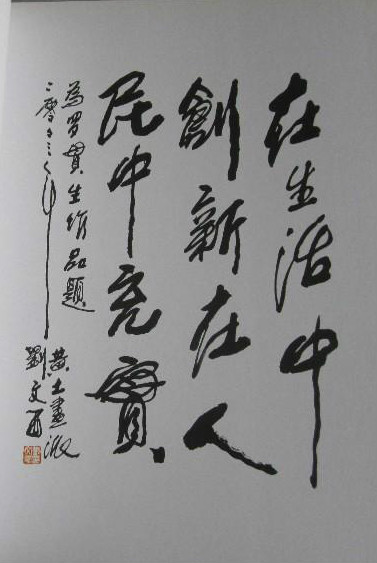 在生活中
創新在人
民中充實
為罗貫生作品題
黄土畫派
劉文西